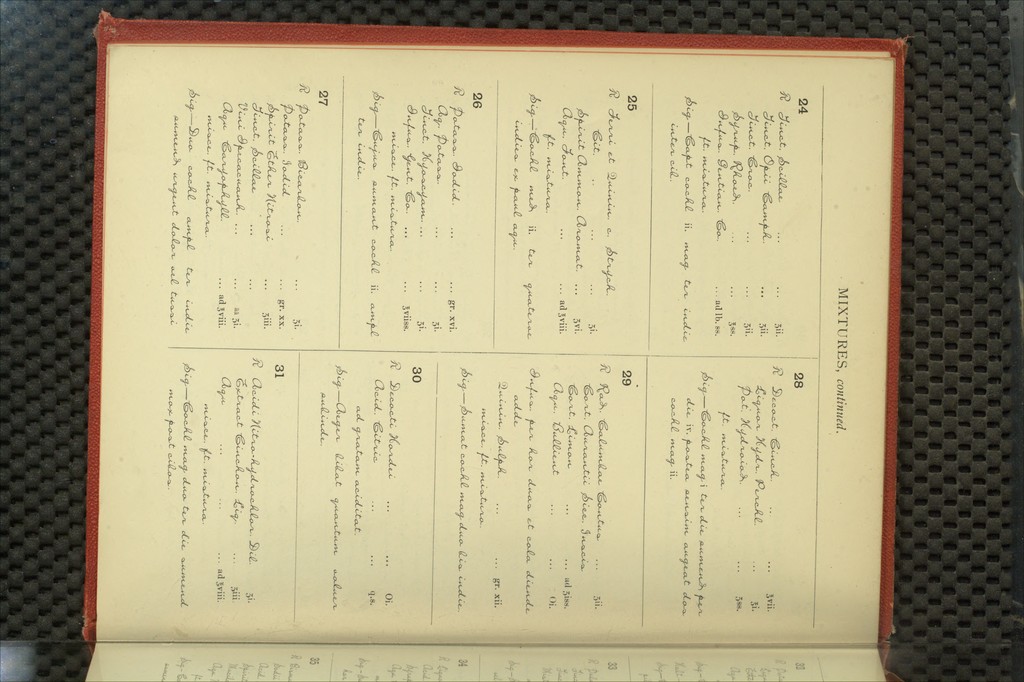 MIXTURES, continued.
24
R Tinct. Scillae ... ʒii.
Tinct. Opii Camph. ... ʒii.
Tinct. Croc. ... ʒii.
Syrup. Rhoead. ... ʒss.
Infus. Gentian. Co. ... ad lb. ss.
ft. mistura.
Sig.—Capt. cochl. ii. mag. ter indie
inter cib.
25
R Ferri et Quinin. c. Strych.
Cit. ... ʒi.
Spirit. Ammon. Aromat. ... ʒvi.
Aqu. Font. ... ad ℥viii.
ft. mistura.
Sig.—Cochl. med. ii. ter quaterve
indies ex paul. aqu.
26
R Potass. Iodid. ... gr. xvi.
Aq. Potass. ... ʒi.
Tinct. Hyoscyam. ... ʒi.
Infus. Gent. Co. ... ℥viiss.
misce ft. mistura.
Sig.—Cujus sumant cochl. ii. ampl.
ter indie.
27
R Potass. Bicarbon. ... ʒi.
Potass. Iodid. ... gr. xx.
Spirit. Ether. Nitrosi ... ʒiii.
Tinct. Scillae
Vini Ipecacuanh. ... aa ʒi.
Aqu. Caryophyll. ... ad ℥viii.
misce ft. mistura.
Sig.—Duo cochl. ampl. ter indie
sumend. urgent. dolor. vel tussi
28
R Decoct. Cinch. ... ℥vii.
Liquor. Hydr. Perchl. ... ʒi.
Pot. Hydroiod. ... ʒss.
ft. mistura.
Sig.—Cochl. mag. i. ter die sumend. per
die. iv. postea sensim augeat dos.
cochl. mag. ii.
29
R Rad. Calumbae Contus. ... ʒii.
Cort. Aurantii Sicc. Inscis.
Cort. Limon. ... aa ʒiss.
Aqu. Bullient. ... Oi.
Infus. per hor. duas et cola diende
adde
Quinin. Sulph. ... gr. xii.
misce ft. mistura.
Sig.—Sumat cochl. mag. duo bis indie
30
R Decocti Hordei ... Oi.
Acid. Citric. ... q.s.
ad gratam aciditat.
Sig.—Aeger bibat quantum voluer.
subinde.
31
R Acidi Nitro-hydrochlor. Dil. ʒi.
Extract. Cinchon. Liq. ... ʒiii
Aqu. ... ad ℥viii.
misce, ft. mistura.
Sig.—Cochl. mag. duo ter die sumend.
mox post cibos.
33
34
35